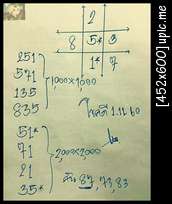 2
8 5* 3
1* 7
251
571
135
835
1,000×1,000
1.11.60
51*
71
21
35*
2,000×2,000
87, 73, 83
[452x600] uplc.me